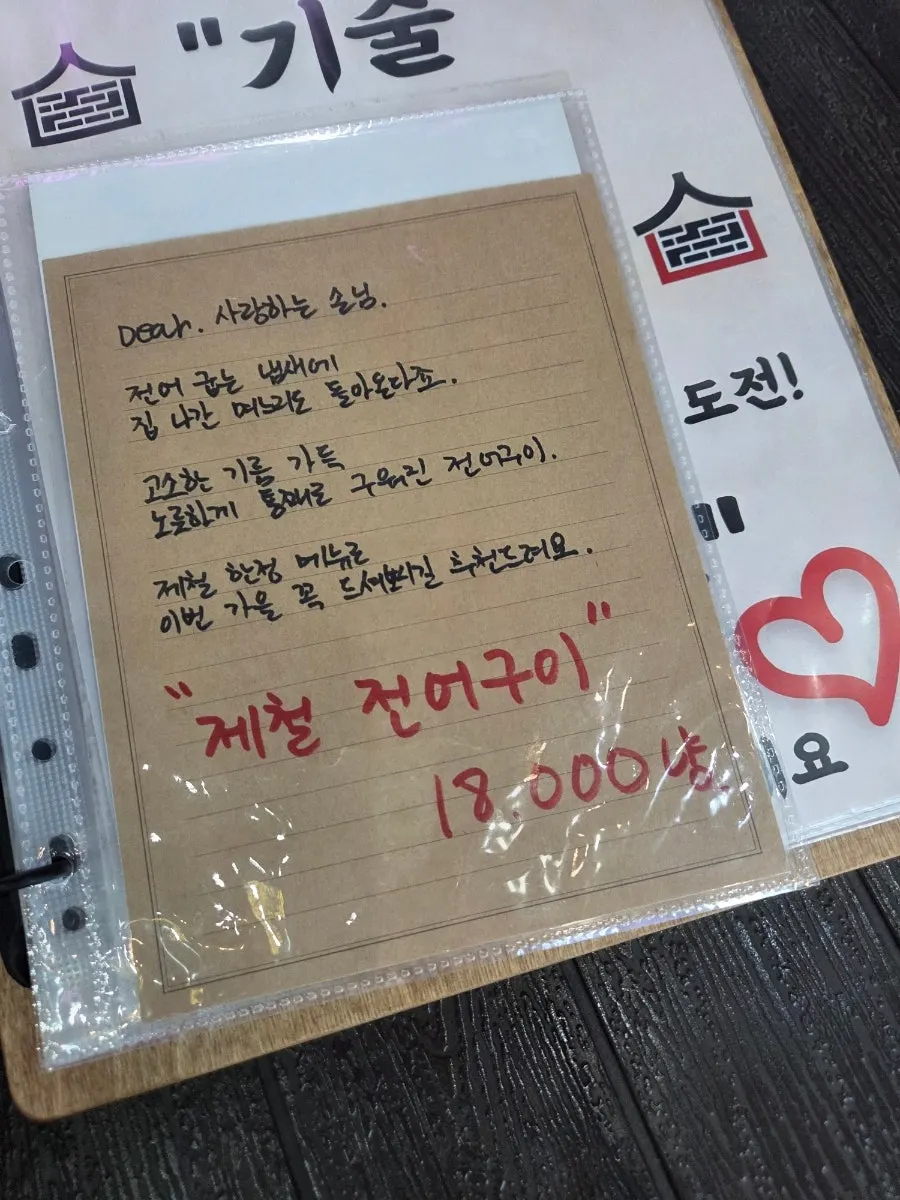 "기술
Dear. 사랑하는 손님.
전어 굽는 냄새에
집 나간 며느리도 돌아온다죠.
고소한 기름 가득
노릇하게 통째로 구워진 전어구이.
제철 한정 메뉴로
이번 가을 꼭 드셔보시길 추천드려요.
"제철 전어구이"
18,000냥
도전!
요